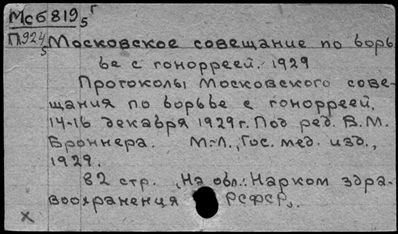 Мсб819 5 г
П924 5
Московское совещание по борь
бе с гонорреей. 1929
Протоколы Московского сове-
щания по борьбе с гонорреей,
14-16 декабря 1929 г. Под ред. В. М.
Броннера. М.-Л., Гос. мед. изд.,
1929.
82 стр. „На обл.: Нарком здра-
воохранения РСФСР„.
х